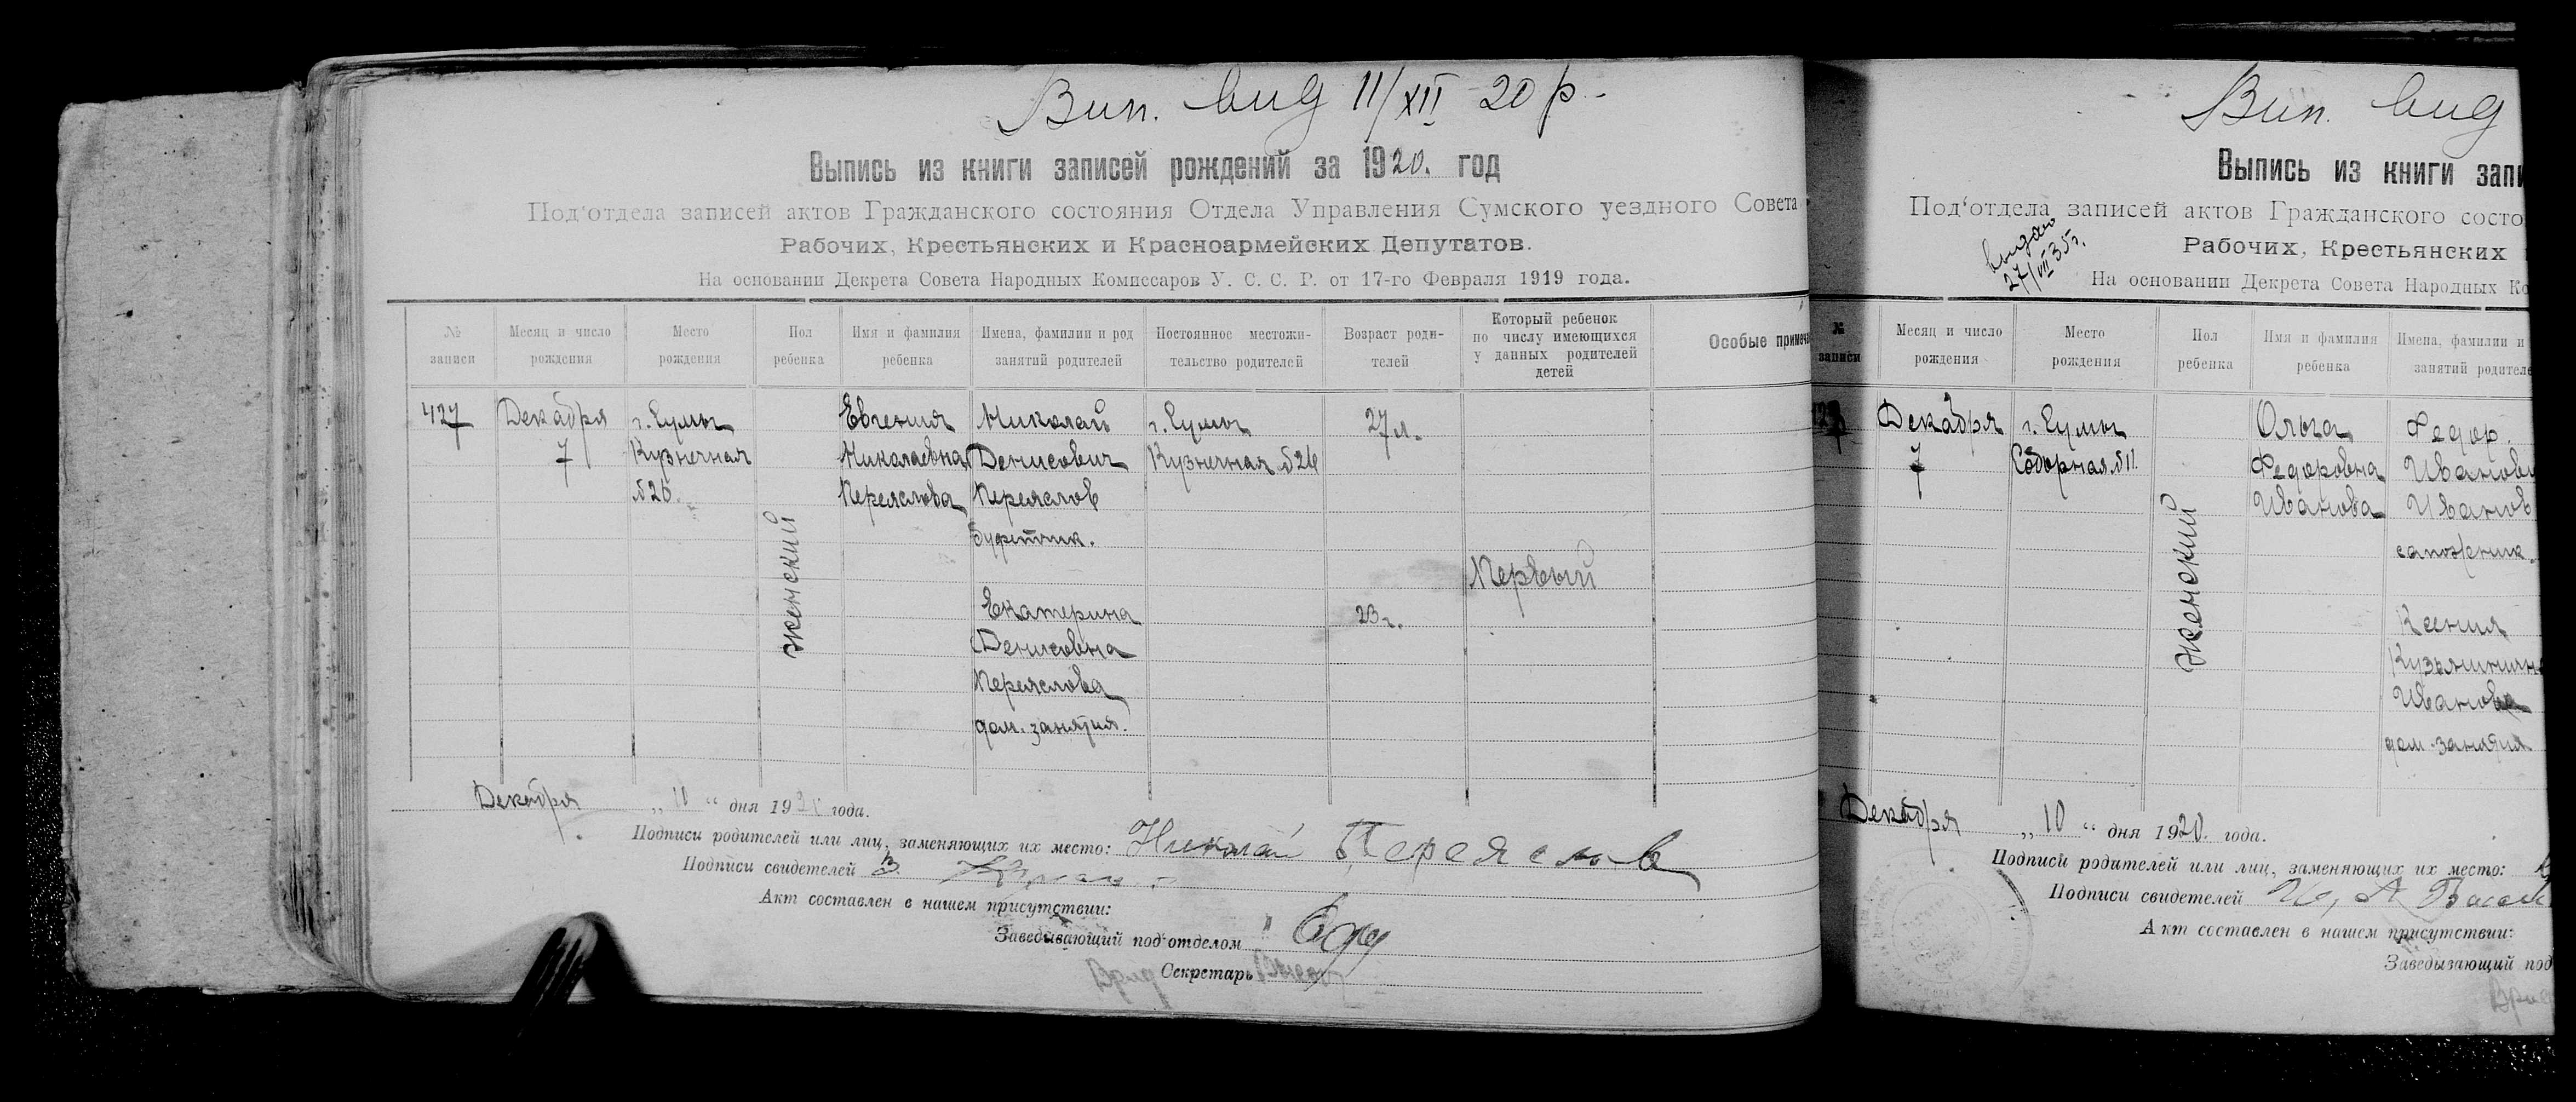 Вип. вид 11/XII 20 р.
Выпись из книги записей рождений за 1920. год
Под‘отдела записей актов Гражданского состояния Отдела Управления Сумского уездного Совета
Рабочих, Крестьянских и Красноармейских Депутатов.
На основании Декрета Совета Народных Комиссаров У. С. С. Р. от 17-го Февраля 1919 года.
№ записи
Месяц и число рождения
Место рождения
Пол ребенка
Имя и фамилия ребенка
Имена, фамилии и род занятий родителей
Постоянное местожительство родителей
Возраст родителей
Который ребенок по числу имеющихся у данных родителей детей
Особые примеча
427
Декабря
7
г. Сумы
Кузнечная
№26.
женский
Евгения
Николаевна
Переяслова
Николай
Денисович
Переяслов
буфетчик.
Екатерина
Денисовна
Переяслова
дом. занятия.
г. Сумы
Кузнечная №26
27 л.
23 г.
Первый
Декабря „ 10 “ дня 192 года.
Подписи родителей или лиц, заменяющих их место: Николай Переяслов
Подписи свидетелей
Акт составлен в нашем присутствии:
Заведывающий под‘отделом
Врид Секретарь
Вип. вид
Выпись из книги запи
Под‘отдела записей актов Гражданского состо
выдано
27/VII 35 г.
Рабочих, Крестьянских
На основании Декрета Совета Народных Ко
№ записи
Месяц и число рождения
Место рождения
Пол ребенка
Имя и фамилия ребенка
Имена, фамилии и
занятий родителе
Декабря
7
г. Сумы
Соборная №11.
женский
Ольга
Федоровна
Иванова
Федор.
Иванови
Иванов
сапожник.
Ксения
Кузьминичн
Иванова
дом. занятия
Декабря „ 10 “ дня 1920. года.
Подписи родителей или лиц, заменяющих их место:
Подписи свидетелей
Акт составлен в нашем присутствии:
Заведывающий под